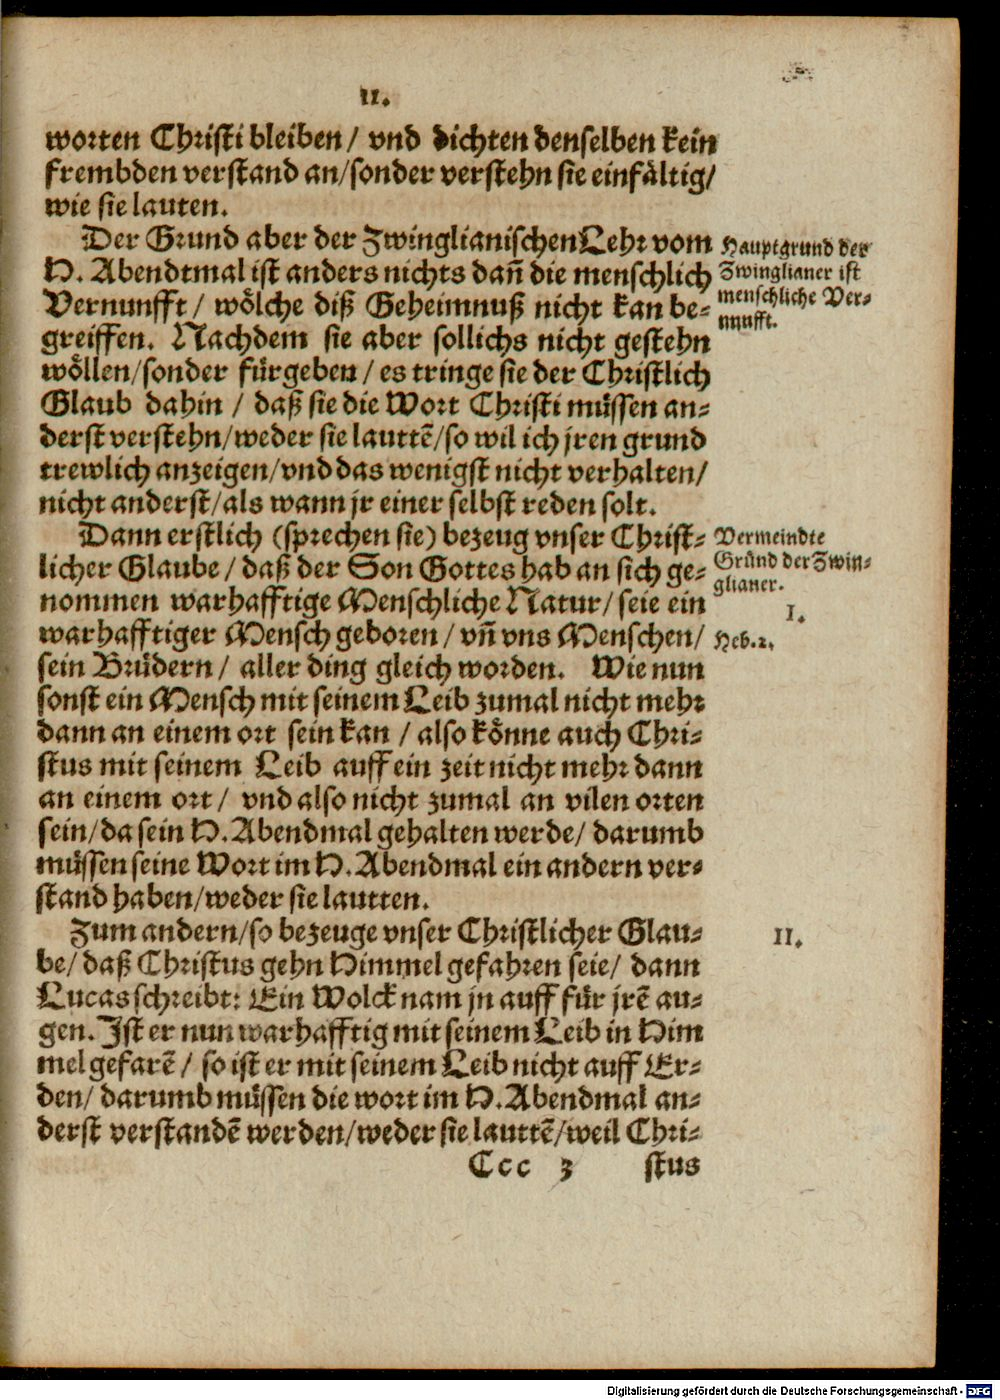 II.
worten Christi bleiben / vnd dichten denselben kein
frembden verstand an/sonder verstehn sie einfältig/
wie sie lauten.
Der Grund aber der Zwinglianischen Lehr vom
H. Abendtmal ist anders nichts dañ die menschlich
Vernunfft / wölche diß Geheimnuß nicht kan be-
greiffen. Nachdem sie aber sollichs nicht gestehn
wöllen/sonder fürgeben / es tringe sie der Christlich
Glaub dahin / daß sie die Wort Christi müssen an-
derst verstehn/weder sie lauttẽ/so wil ich jren grund
trewlich anzeigen/vnd das wenigst nicht verhalten/
nicht anderst/als wann jr einer selbst reden solt.
Hauptgrund der
Zwinglianer ist
menschliche Ver-
nunfft.
Dann erstlich (sprechen sie) bezeug vnser Christ-
licher Glaube / daß der Son Gottes hab an sich ge-
nommen warhafftige Menschliche Natur/ seie ein
warhafftiger Mensch geboren / vñ vns Menschen/
sein Brüdern / aller ding gleich worden. Wie nun
sonst ein Mensch mit seinem Leib zumal nicht mehr
dann an einem ort sein kan / also könne auch Chri-
stus mit seinem Leib auff ein zeit nicht mehr dann
an einem ort / vnd also nicht zumal an vilen orten
sein/da sein H. Abendmal gehalten werde/ darumb
müssen seine Wort im H. Abendmal ein andern ver-
stand haben/weder sie lautten.
Vermeindte
Gründ der Zwin-
glianer.
I.
Heb.2.
Zum andern/so bezeuge vnser Christlicher Glau-
be/ daß Christus gehn Himmel gefahren seie/ dann
Lucas schreibt: Ein Wolck nam jn auff für jrẽ au-
gen. Ist er nun warhafftig mit seinem Leib in Him
mel gefarẽ / so ist er mit seinem Leib nicht auff Er-
den/ darumb müssen die wort im H. Abendmal an-
derst verstandẽ werden/weder sie lauttẽ/weil Chri-
II.
Ccc 3 stus
Digitalisierung gefördert durch die Deutsche Forschungsgemeinschaft - DFG